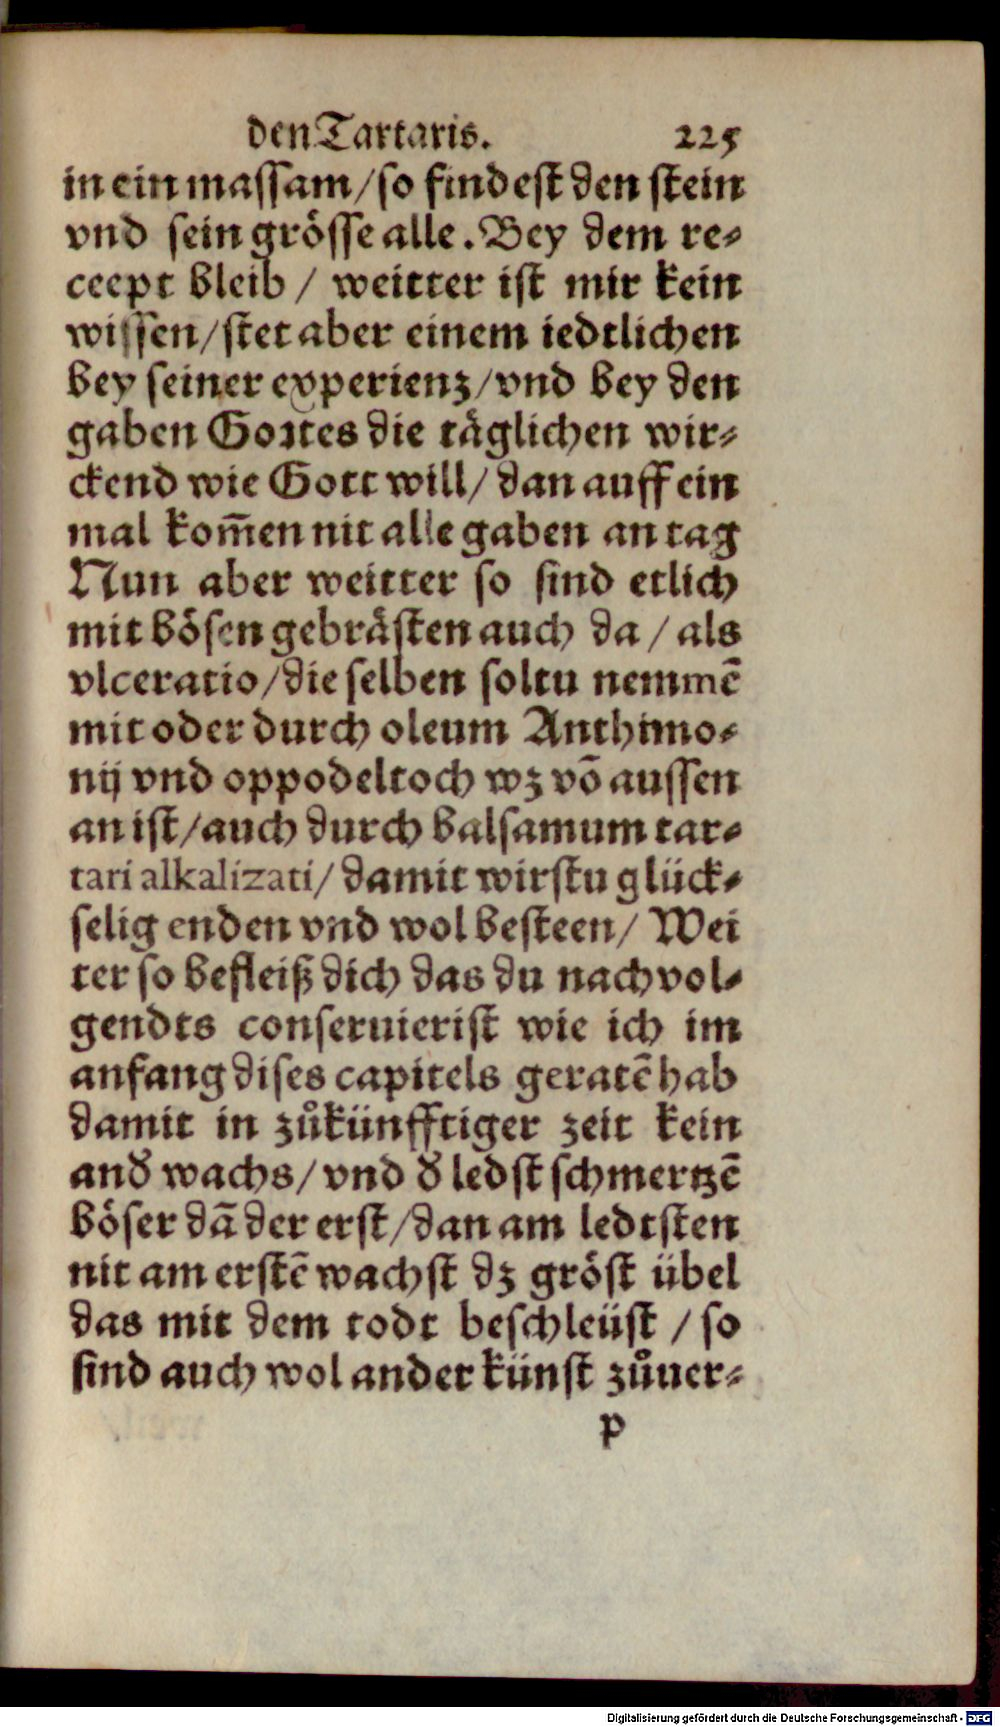 den Tartaris. 225
in ein massam/so findest den stein
vnd sein grösse alle. Bey dem re⸗
ceept bleib / weitter ist mir kein
wissen/stet aber einem iedtlichen
bey seiner experienz/vnd bey den
gaben Gottes die täglichen wir⸗
ckend wie Gott will/ dan auff ein
mal kom̄en nit alle gaben an tag
Nun aber weitter so sind etlich
mit bösen gebrästen auch da / als
vlceratio/die selben soltu nemmē
mit oder durch oleum Anthimo⸗
nij vnd oppodeltoch wz vō aussen
an ist/auch durch balsamum tar⸗
tari alkalizati/ damit wirstu glück⸗
selig enden vnd wol besteen/ Wei
ter so befleiß dich das du nachvol⸗
gendts conseruierist wie ich im
anfang dises capitels geratē hab
damit in zůkünfftiger zeit kein
and̕ wachs/ vnd d̕ ledst schmertzē
böser dā der erst/dan am ledtsten
nit am erstē wachst dz gröst übel
das mit dem todt beschleüst / so
sind auch wol ander künst zůuer⸗
p
Digitalisierung gefördert durch die Deutsche Forschungsgemeinschaft - DFG